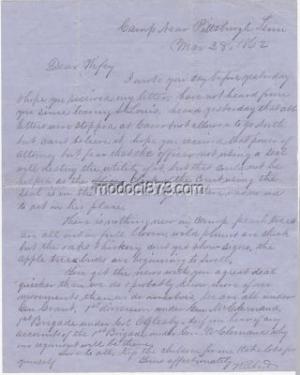 Camp Near Pittsburgh Tenn
Mar 28, 1862
Dear Wifey
I wrote you day before yesterday
I hope you received my letter, have not heard from
you since leaving St Louis, heard yesterday that all
letters were stopped at Cairo not allowed to go South
but can't believe it, hope you received that power of
attorney but fear that the officer not using a seal
will destroy the utility of it, but this can't be
helped
is in the
to act in his place.
There is nothing new in Camp, peach trees
are all out in full bloom, wild plums are thick
but the oaks & hickory not yet show signs, the
apple tree buds are beginning to swell,
You get the news with you a great deal
quicker than we do & probably know more of our
movements than we do ourselves, we are all under
Gen Grant, 1st division under Gen McClernand,
1st Brigade under Col Oglesby, if you hear of any
accounts of the 1st Brigade under Gen McClernand why
our regiment will be there.
Love to all, kiss the children for me, lots for
yourself
Yours affectionately
modoc1873.com